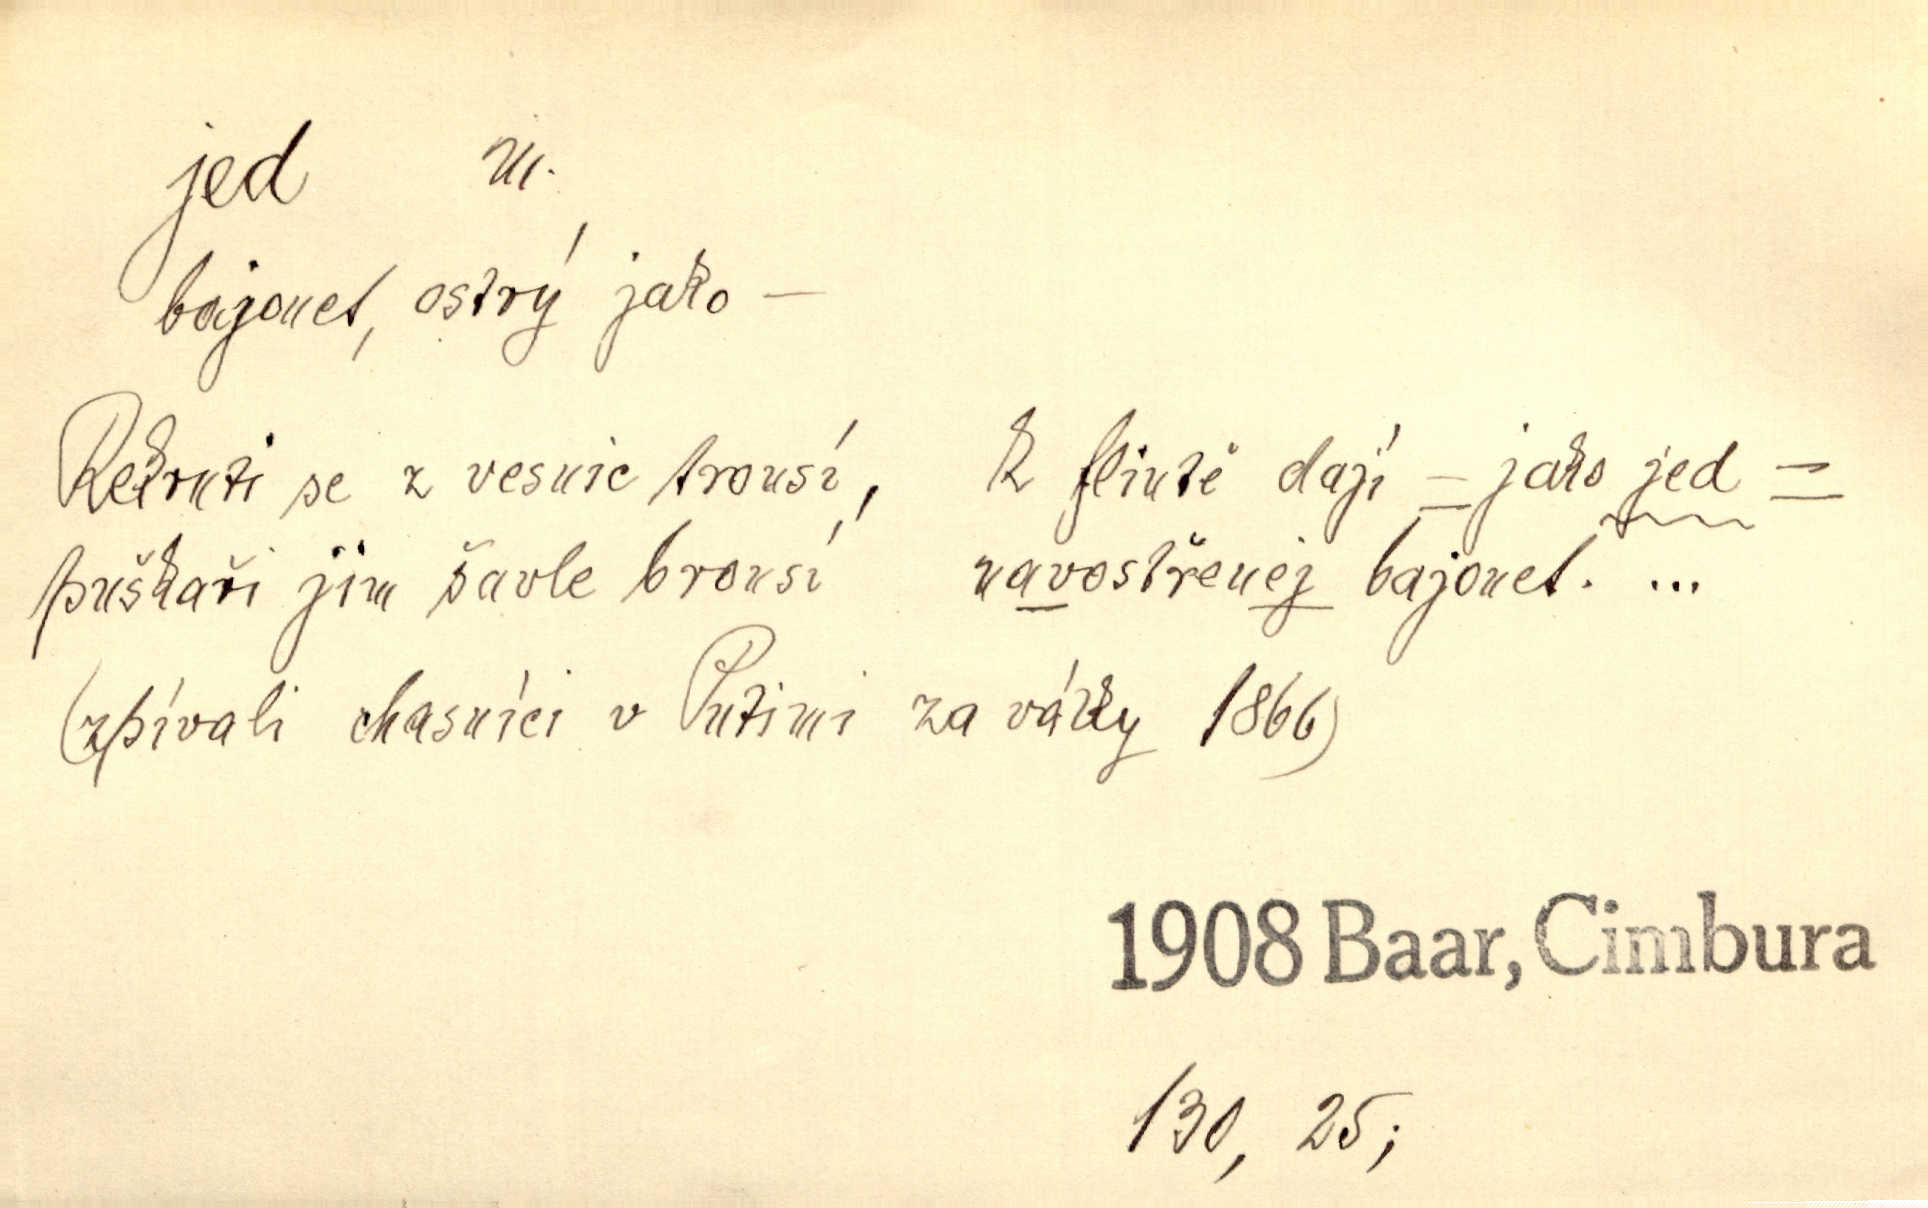 jed m.
bajonet, ostrý jako —
Rekruti se z vesnic trousí, k flintě dají – jako jed =
puškaři jim šavle brousí navostřenej bajonet. ...
(zpívali chasníci v Putimi za války 1866)
1908 Baar, Cimbura
130, 25;